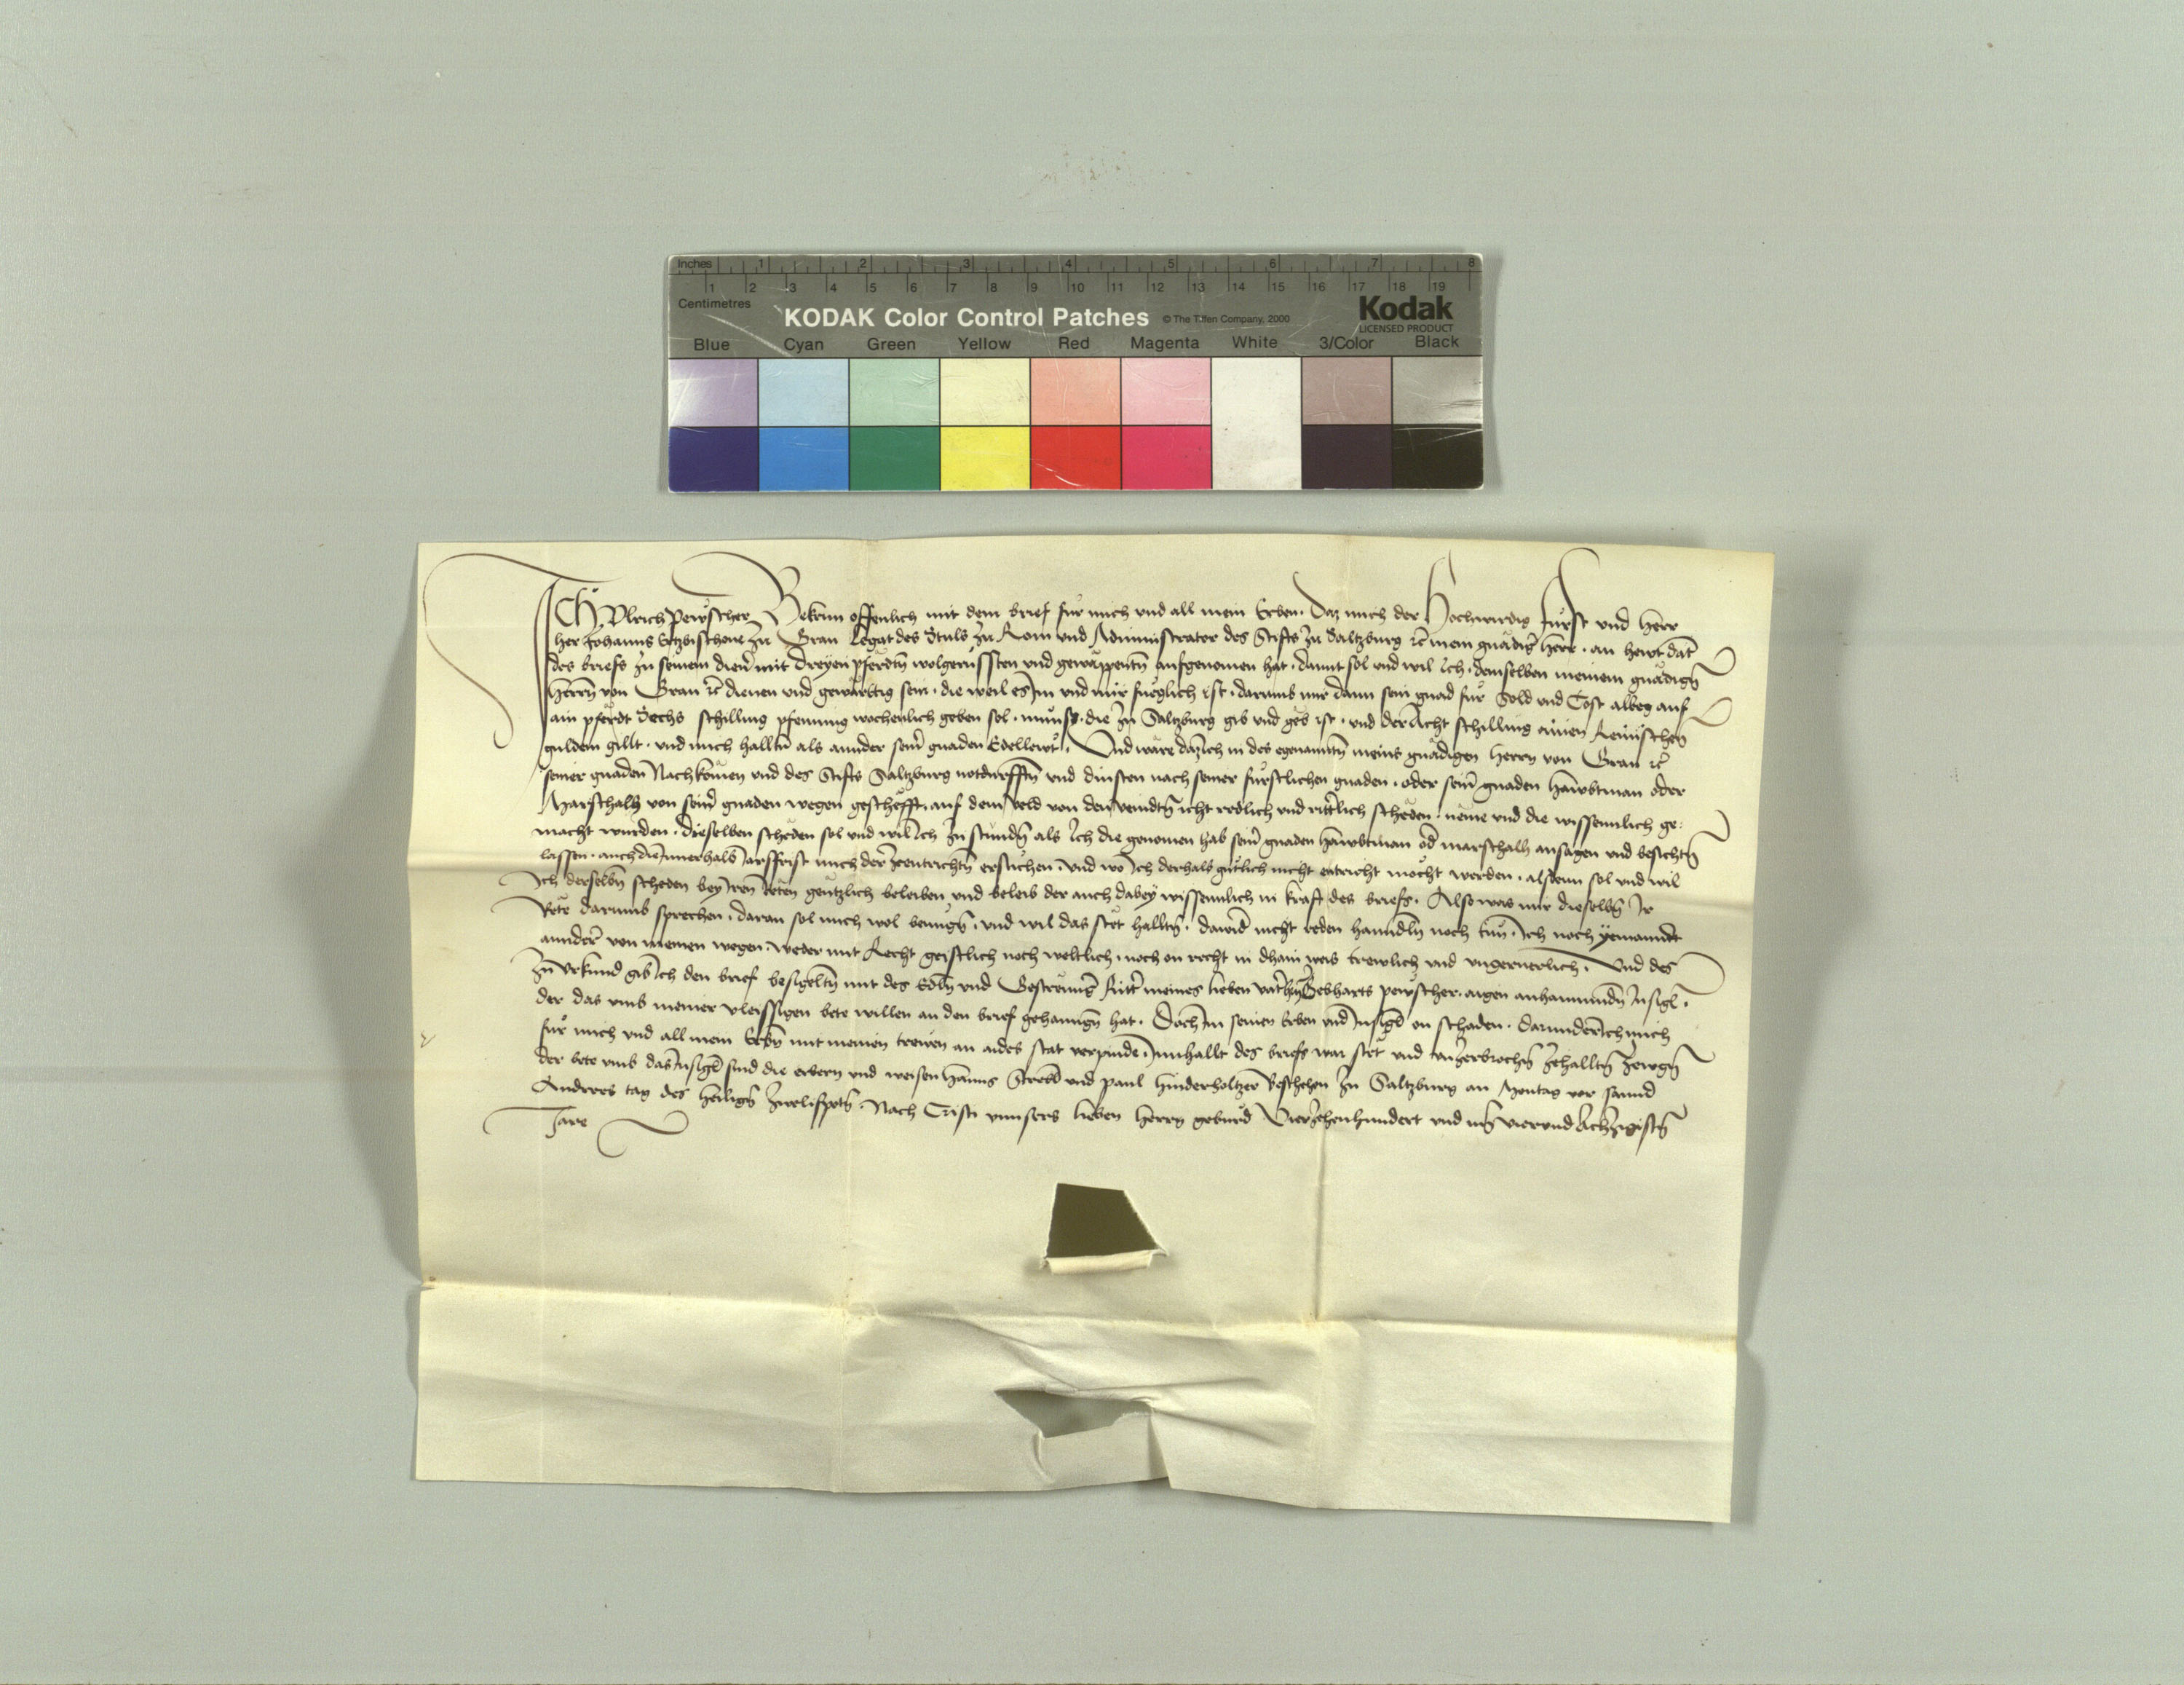 Inches 1 2 3 4 5 6 7 8
1 2 3 4 5 6 7 8 9 10 11 12 13 14 15 16 17 18 19
Centimetres
KODAK Color Control Patches © The Tiffen Company, 2000 Kodak
LICENSED PRODUCT
Blue Cyan Green Yellow Red Magenta White 3/Color Black
Ich Vlrich Pewscher Bekenn offenlich mit dem brief für mich vnd all mein Erben. Daz mich der Hochwirdig Fürst vnd herr
her Johanns Ertzbischoue zu Gran Legat des Stuls zu Rom vnd Administrator des Stifts zu Saltzburg etc mein gnädiger herr. an hewt dat
des briefs zu seinem diener mit dreyen pferdtn wolgerüssten vnd gewappentn aufgenomen hat. damit sol vnd wil Ich. demselben meinem gnädign
herrn von Gran etc dienen vnd gewärttig sein. die weil es Im vnd mir fueglich ist. darumb mir dann sein gnad für Sold vnd Cost albeg auf
ain pferdt Sechs schilling pfenning wochenlich geben sol. münss. die zu Saltzburg gib vnd geb ist. vnd der Acht schilling ainen Reinischen
guldein gillt. vnd mich halltn als annder seinr gnaden Edellewt. Vnd wäre daz Ich in des egenanntn meins gnädigen herrn von Gran etc
seiner gnaden Nachkomen vnd des Stifts Saltzburg notdurfftn vnd dinsten nach seiner fürstlichen gnaden. oder seinr gnaden hawbtman oder
Marschalh von seinr gnaden wegen geschefft. auf dem veld von den veindtn icht redlich vnd ritterlich scheden. neme vnd die wissennlich ge-
macht wurden. dieselben scheden sol vnd wil Ich zu stundn als Ich die genomen hab seinr gnaden hawbtman oder marschalh ansagen vnd besichtn
lassen. auch die Innerhalb Jarsfrist mich der zeentrichtn ersuchen. vnd wo Ich derhalb gütlich nicht entricht möcht werden. alsdenn sol vnd wil
Ich derselbn scheden bey Iren Reten genntzlich beleiben vnd beleib der auch dabey wissennlich in kraft des briefs. Also was mir dieselbn Ir
Rete darumb sprechen. daran sol mich wol benügn. vnd wil das stet halltn. dawider nicht reden hanndln noch tun. Ich noch yemanndt
annder von meinen wegen. weder mit Recht geistlich noch weltlich. noch on recht in dhain weis trewlich vnd vngeuerlich. Vnd des
zu vrkund gib Ich den brief besigeltn mit des Edln vnd Gestrenngn Ritter meines lieben vater hern Gebharts pewscher. aigen anhanngundn Insigl.
der das vmb meiner vleissigen bete willen an den brief gehanngn hat. Doch Im seinen Erben vnd Insigl on schaden. Darunder Ich mich
für mich vnd all mein Erbn mit meinen trewen an aides stat verpinde. Innhallt des briefs war stet vnd vnzerbrochn zehalltn. Zewgn
der bete vmb das Insigl sind die erbern vnd weisen hanns vnd paul hinderholtzer Beschehen zu Saltzburg an Montag vor sannd
Andrees tag des heiligen zwelifpotn. Nach Cristi vnnsers lieben herrn geburd Vierzehenhundert vnd im vierundachtzigistn
Jare